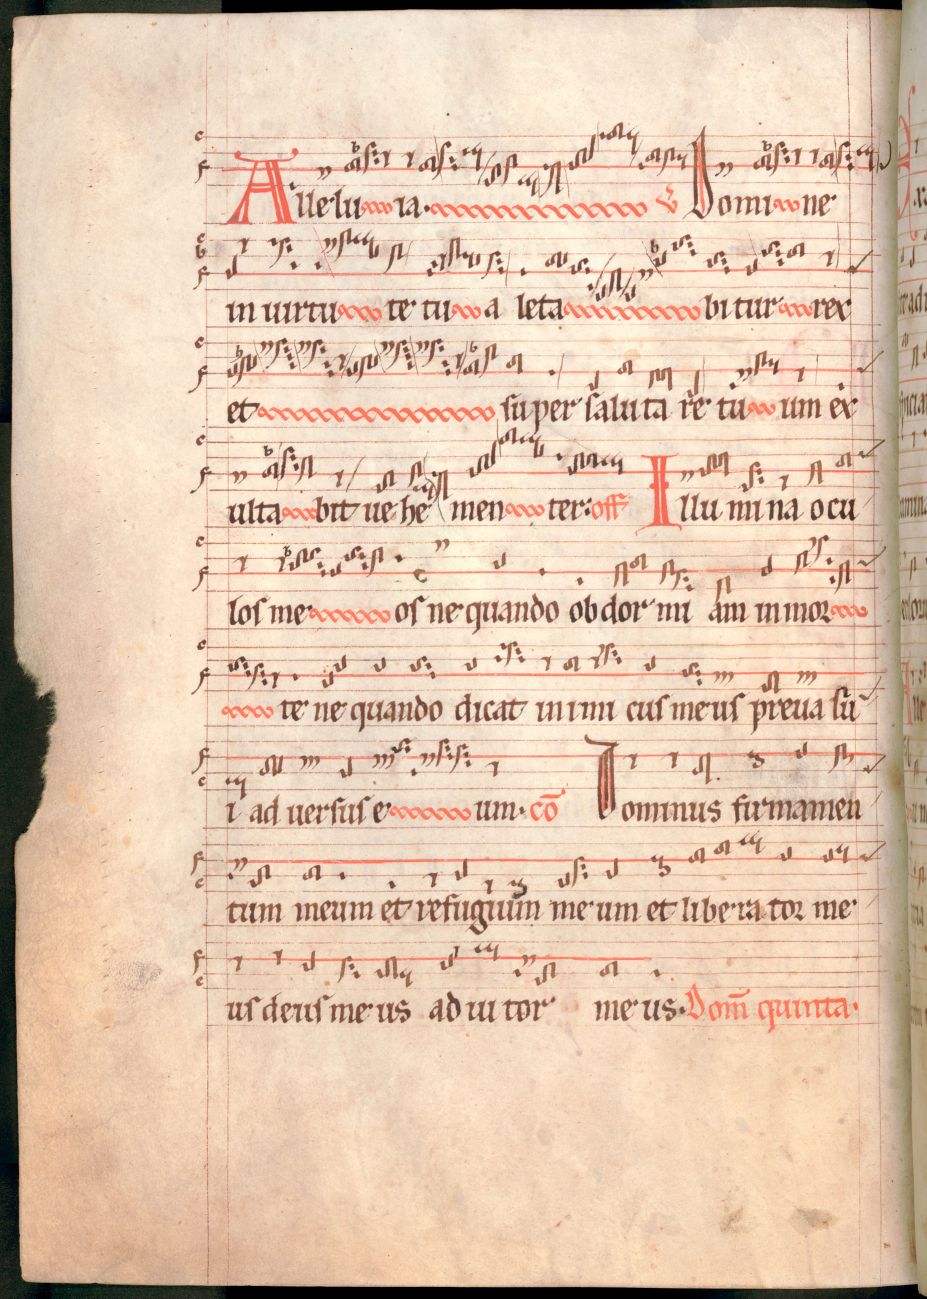 Allelu ia. V Domi ne
in uirtu te tu a leta bi tur rex
et super saluta re tu um ex
ulta bit ue he men ter: off Illu mi na o cu
los me os ne quando ob dor mi am in mor
te ne quando dicat in i mi cus me us preua lu
i ad uersus e um. cō Dominus firmamen
tum meum et refugium me um et libera tor me
us deus me us ad iu tor me us. Dom̄ quinta.